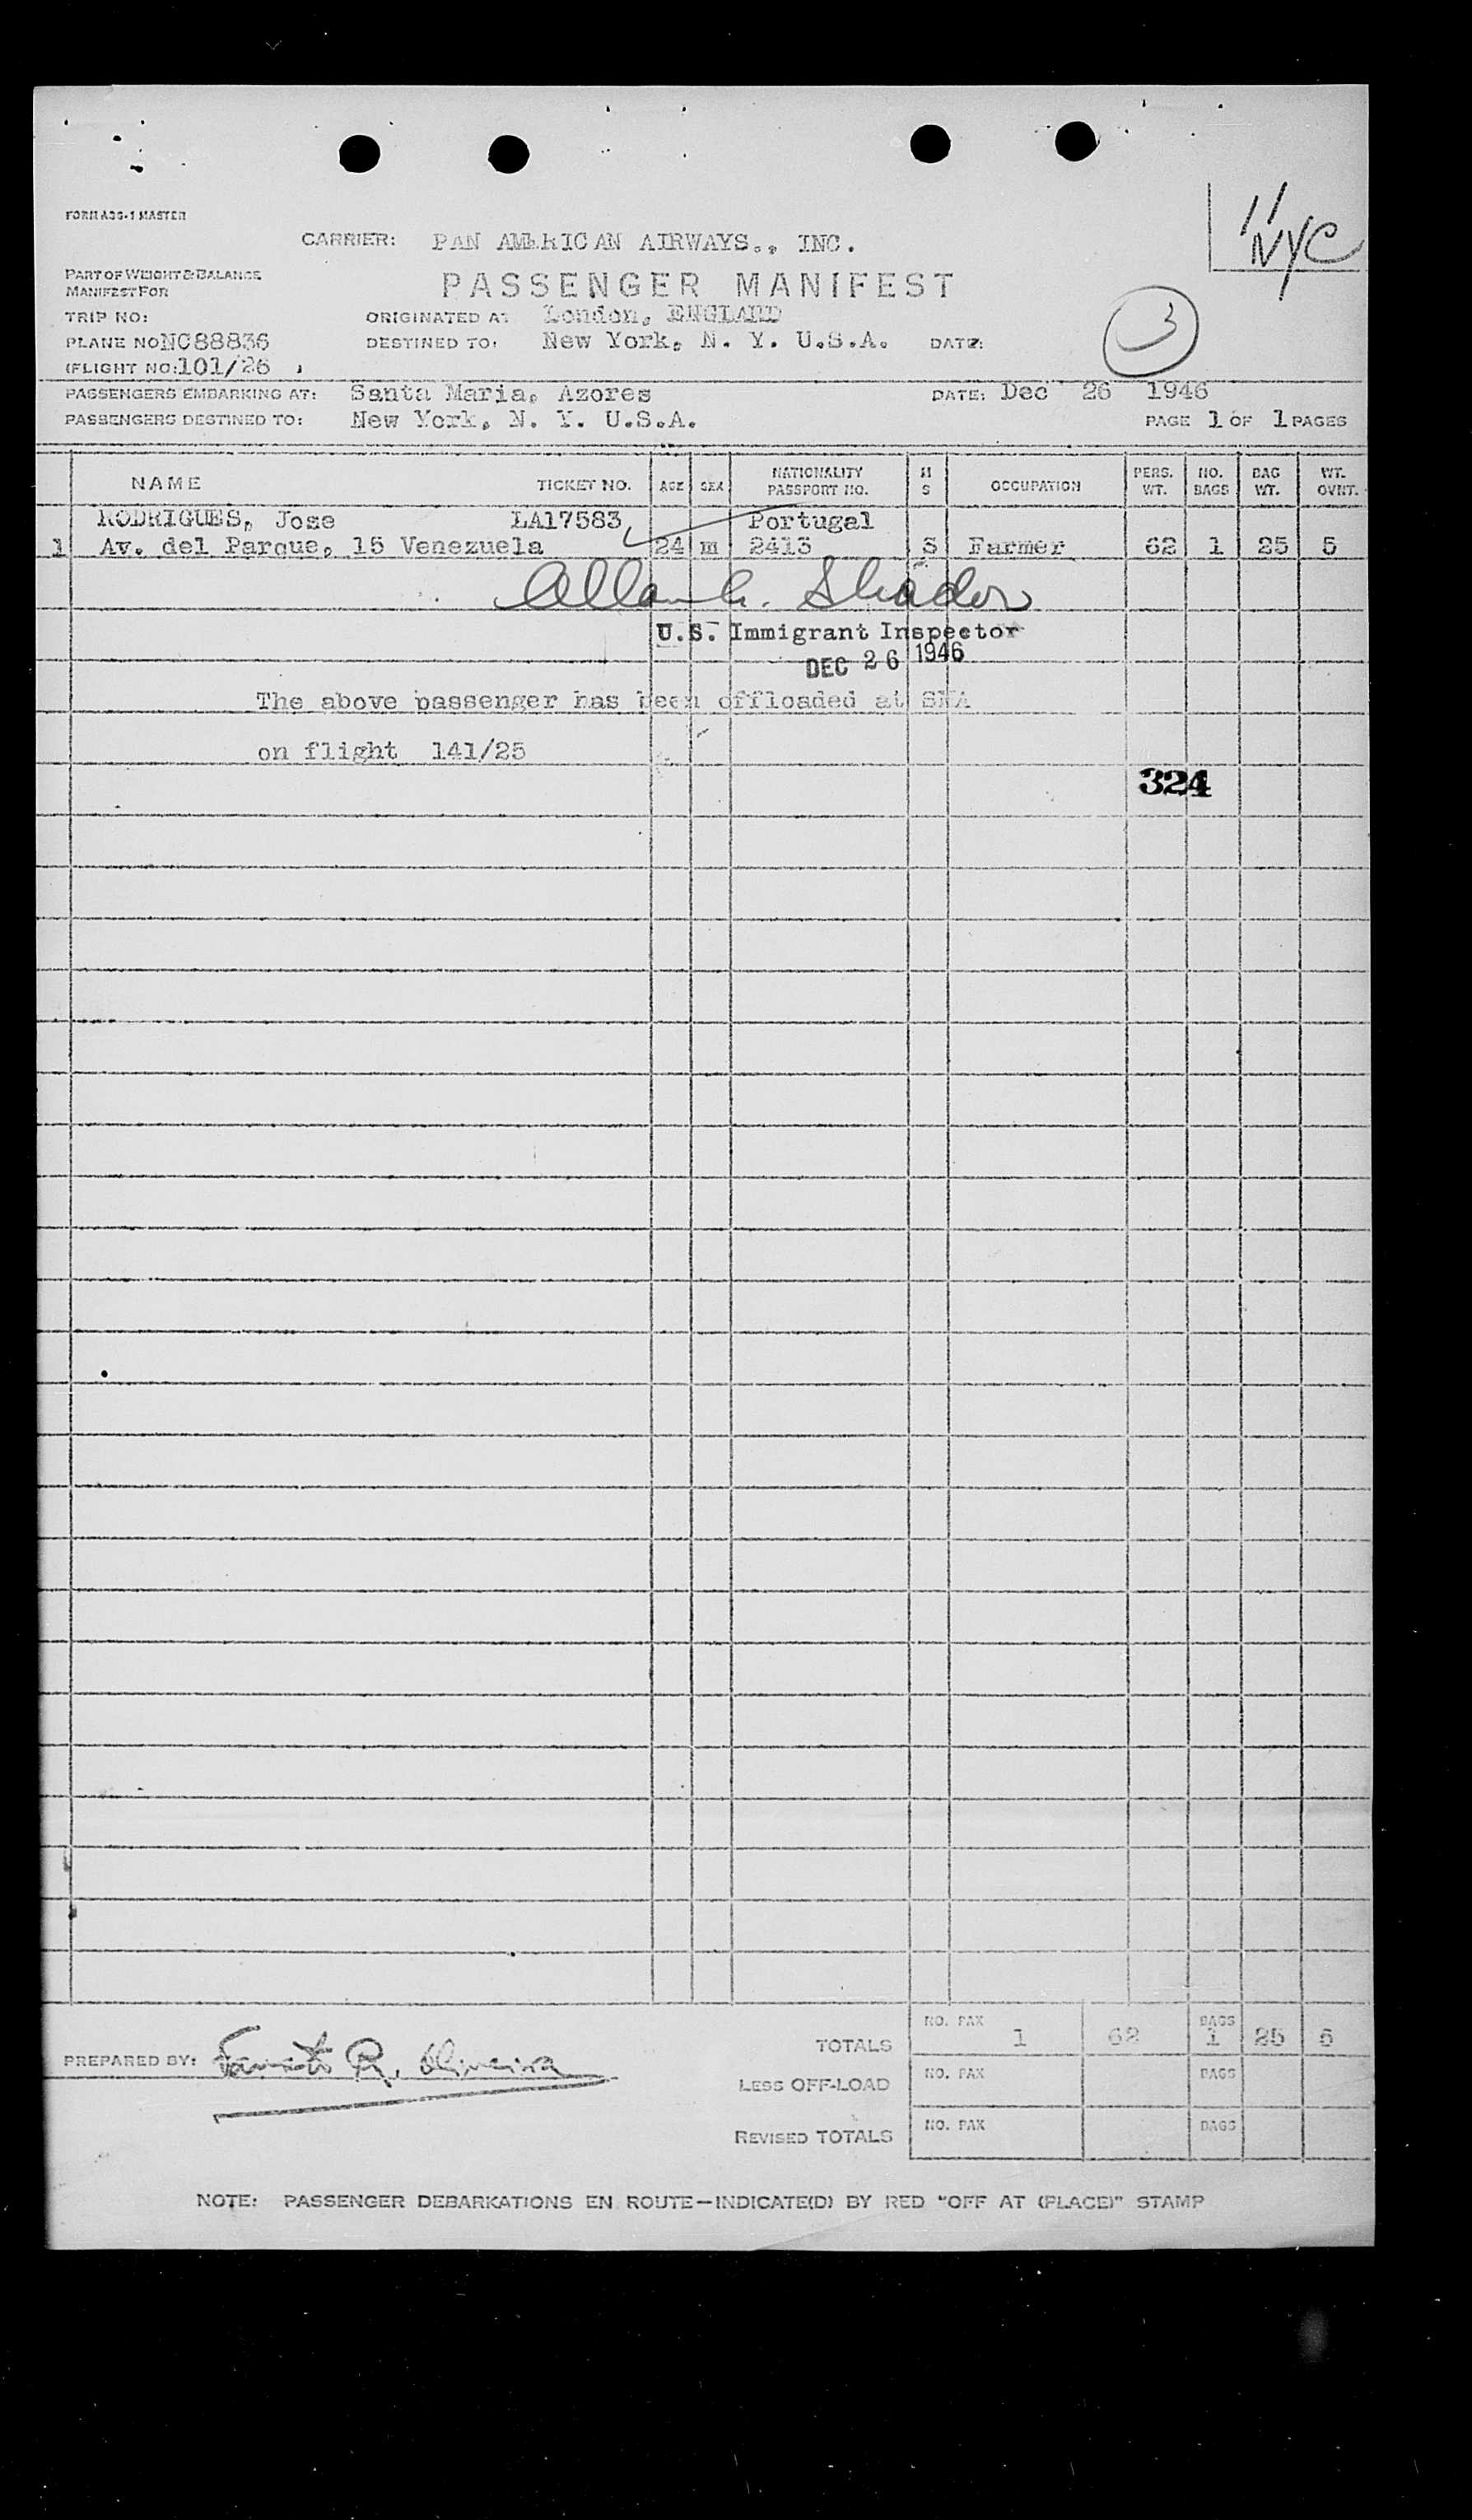 11
NYC
FORM A36-1 MASTER
CARRIER: PAN AMERICAN AIRWAYS., INC.
PART OF WEIGHT & BALANCE
MANIFEST FOR
PASSENGER MANIFEST
TRIP NO: ORIGINATED AT London, ENGLAND
3
PLANE NO: NC88836 DESTINED TO: New York, N. Y. U.S.A. DATE:
(FLIGHT NO: 101/26 )
PASSENGERS EMBARKING AT: Santa Maria, Azores DATE: Dec 26 1946
PASSENGERS DESTINED TO: New York, N. Y. U.S.A. PAGE 1 OF 1 PAGES
NAME TICKET NO. AGE SEX NATIONALITY PASSPORT NO. M S OCCUPATION PERS. WT. NO. BAGS BAG WT. WT. OVNT.
RODRIGUES, Jose LA17583 Portugal
1 Av. del Parque, 15 Venezuela 24 m 2413 S Farmer 62 1 25 5
U.S. Immigrant Inspector
DEC 26 1946
The above passenger has been offloaded at SMA
on flight 141/25
324
TOTALS NO. PAX 1 62 BAGS 1 25 5
PREPARED BY: R. Oliveira
LESS OFF-LOAD NO. PAX BAGS
REVISED TOTALS NO. PAX BAGS
NOTE: PASSENGER DEBARKATIONS EN ROUTE—INDICATE(D) BY RED "OFF AT (PLACE)" STAMP